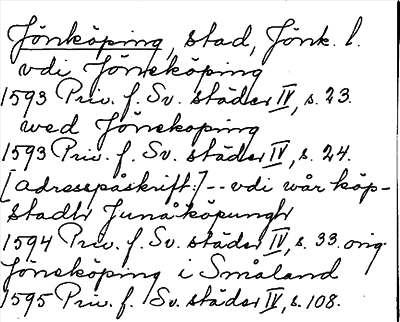 Jönköping, stad, Jönk. l.
vdi Jöneköping
1593 Priv. f. Sv. städer IV, s. 23.
wed Jönekoping
1593 Priv. f. Sv. städer IV, s. 24.
[Adresspåskrift:] -- vdi wår köp-
stadh Junåköpungh
1594 Priv. f. Sv. städer IV, s. 33. orig.
Jöneköping i Småland
1595 Priv. f. Sv. städer IV, s. 108.